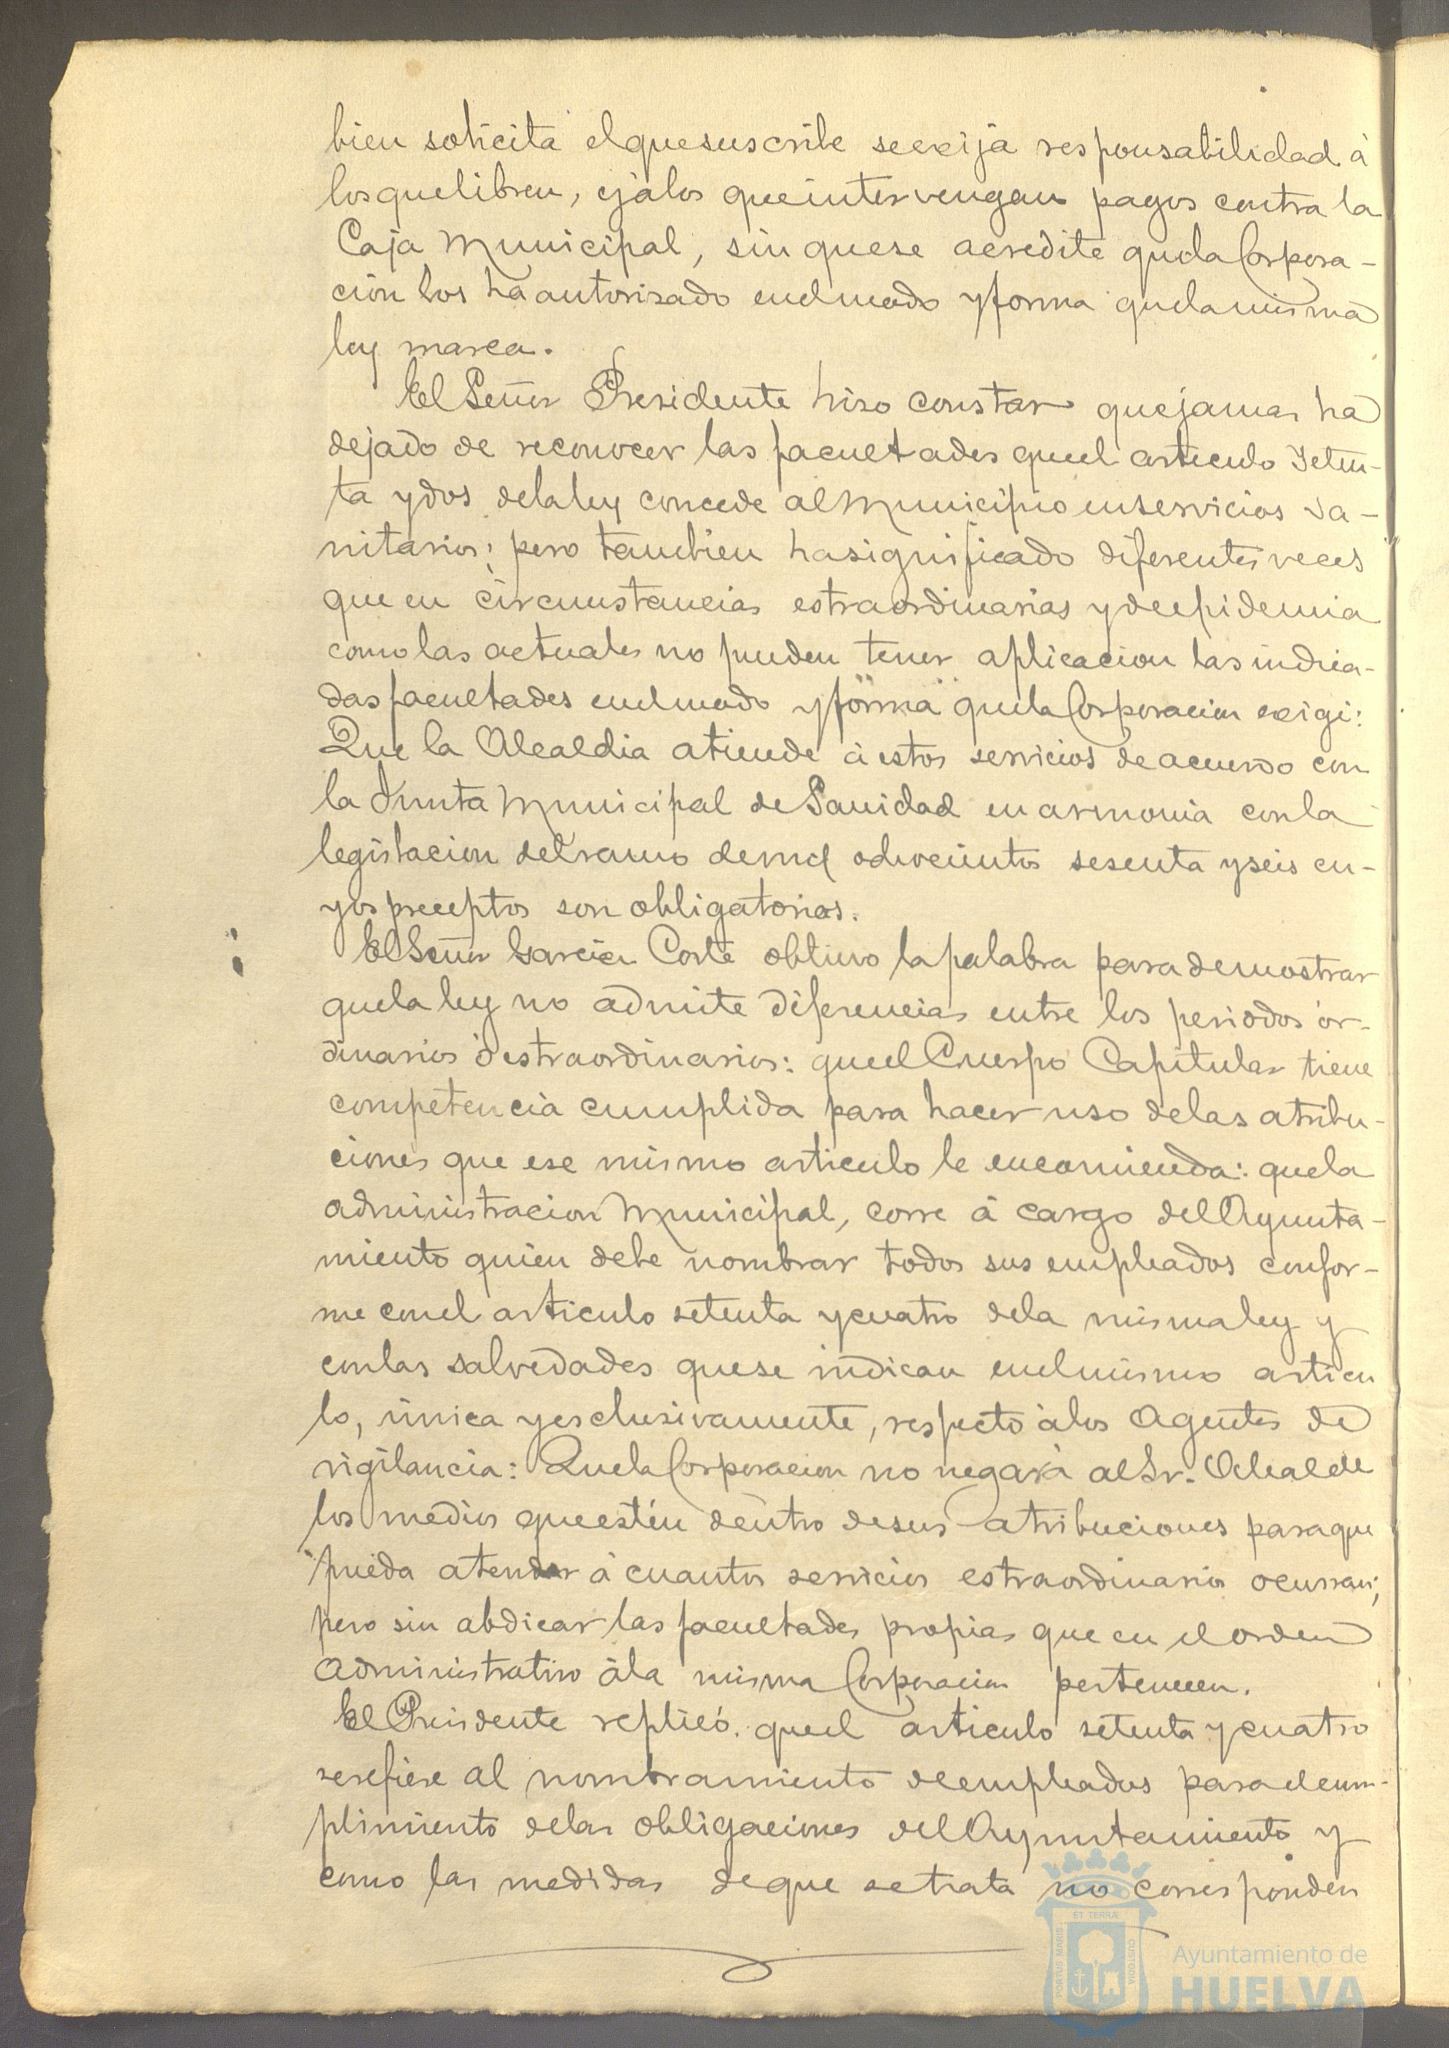 bien solicita el que suscribe se exija responsabilidad á
los que libren, y á los que intervengan pagos contra la
Caja Municipal, sin que se acredite que la Corpora-
ción los ha autorizado en el modo y forma que la misma
ley marca.
El Señor Presidente hizo constar que jamas ha
dejado de reconocer las facultades que el articulo seten-
ta y dos de la ley concede al Municipio en servicios sa-
nitarios; pero tambien ha significado diferentes veces
que en circunstancias estraordinarias y de epidemia
como las actuales no pueden tener aplicacion las indica-
das facultades en el modo y forma que la Corporacion exige:
Que la Alcaldia atiende á estos servicios de acuerdo con
la Junta Municipal de Sanidad en armonia con la
legislacion del ramo de mil ochocientos sesenta y seis cu-
yos preceptos son obligatorios.
El Señor Garcia Corté obtuvo la palabra para demostrar
que la ley no admite diferencias entre los periodos or-
dinarios ó estraordinarios: que el Cuerpo Capitular tiene
competencia cumplida para hacer uso de las atribu-
ciones que ese mismo articulo le encomienda: que la
administracion Municipal, corre á cargo del Ayunta-
miento quien debe nombrar todos sus empleados confor-
me con el articulo setenta y cuatro de la misma ley y
con las salvedades que se indican en el mismo articu
lo, única y esclusivamente, respecto á los Agentes de
vigilancia: Que la Corporacion no negará al Sr. Alcalde
los medios que estén dentro de sus atribuciones para que
pueda atender á cuantos servicios estraordinarios ocurran;
pero sin abdicar las facultades propias que en el orden
administrativo á la misma Corporacion pertenecen.
El Presidente replicó. que el articulo setenta y cuatro
se refiere al nombramiento de empleados para el cum-
plimiento de las obligaciones del Ayuntamiento y
como las medidas de que se trata no corresponden
PORTUS MARIS
ET TERRÆ
CUSTODIA
Ayuntamiento de
HUELVA